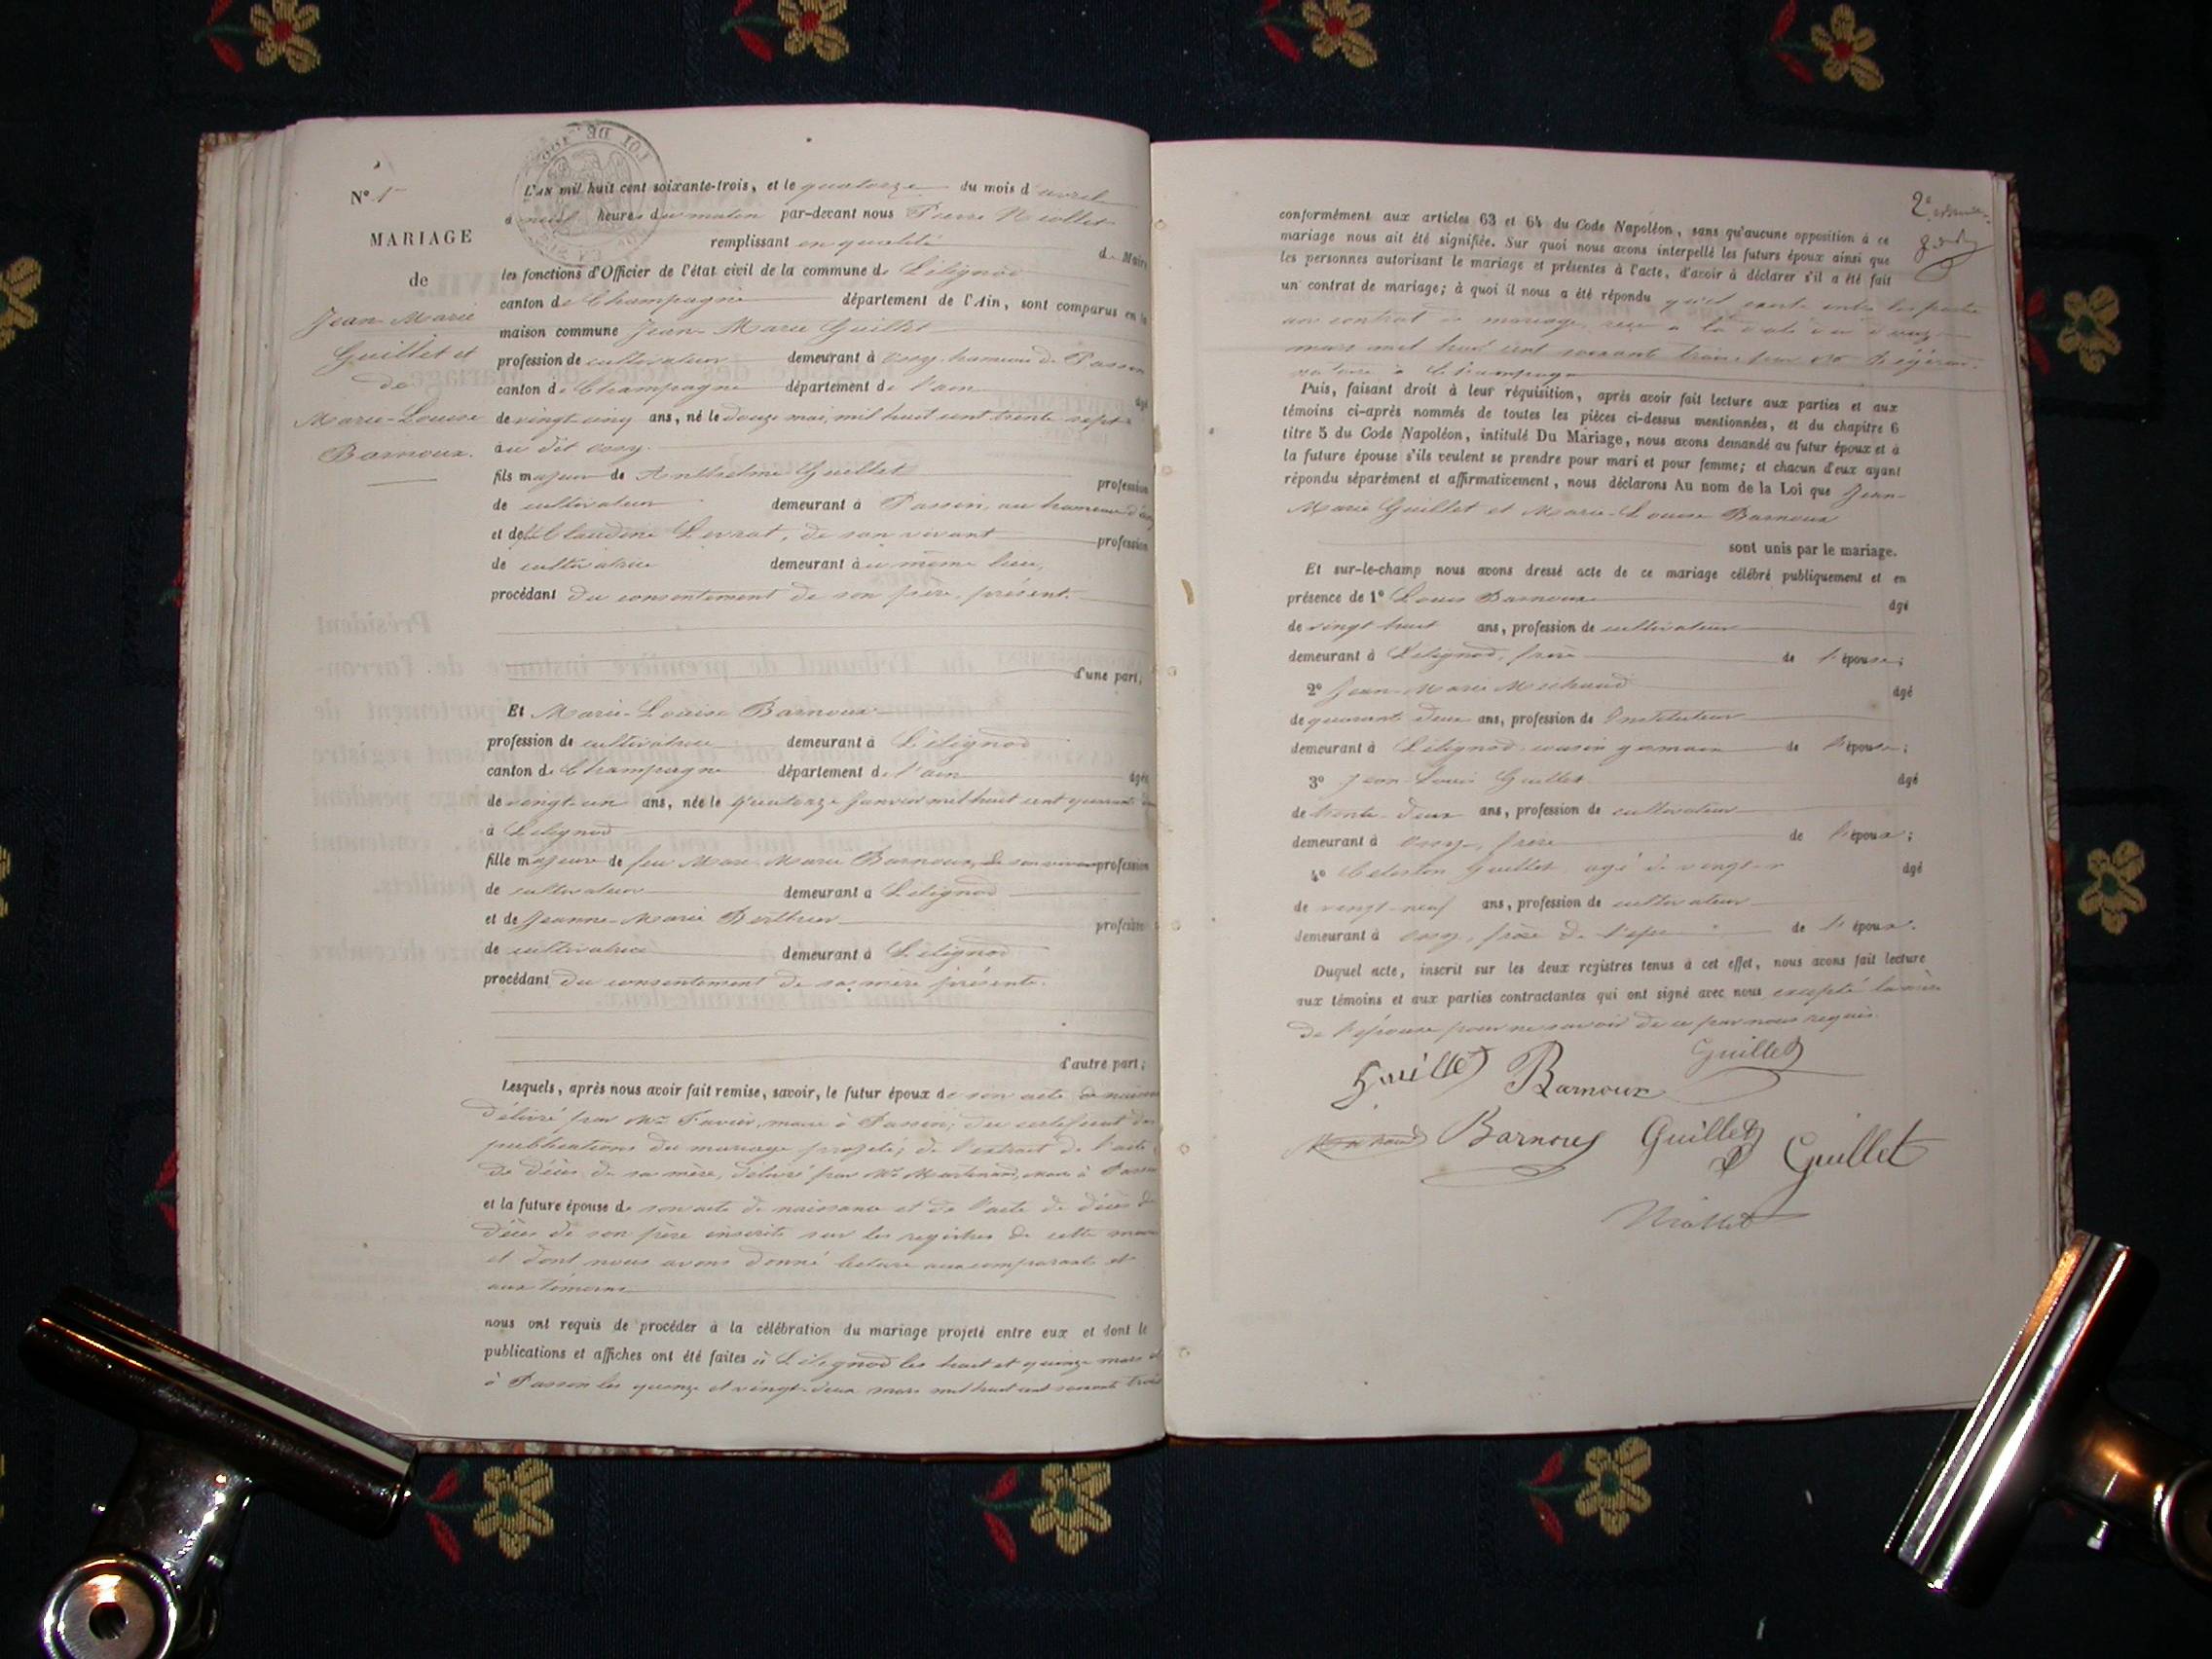 N° 1
MARIAGE
de
Jean Marie
Guillet et
de
Marie-Louise
Barnoux.
L'AN mil huit cent soixante-trois, et le quatorze du mois d'avril
à neuf heures du matin par-devant nous Pierre
remplissant en qualité de Maire
les fonctions d'Officier de l'état civil de la commune de Lilignod
canton de Champagne département de l'Ain, sont comparus en la
maison commune Jean-Marie Guillet
profession de cultivateur demeurant à Ossy, hameau de Passin
canton de Champagne département de l'ain âgé
de vingt cinq ans, né le douze mai, mil huit cent trente sept
au dit Ossy.
fils majeur de Anthelme Guillet profession
de cultivateur demeurant à Passin, au hameau d'Ossy
et de Claudine Levrat, de son vivant profession
de cultivatrice demeurant au même lieu,
procédant du consentement de son père, présent.
d'une part;
Et Marie-Louise Barnoux
profession de cultivatrice demeurant à Lilignod
canton de Champagne département de l'ain âgée
de vingt-un ans, née le quatorze janvier mil huit cent quarante
à Lilignod
fille majeure de feu Marie Barnoux, de son vivant profession
de cultivateur demeurant à Lilignod
et de Jeanne-Marie Berthier profession
de cultivatrice demeurant à Lilignod
procédant du consentement de sa mère présente.
d'autre part;
Lesquels, après nous avoir fait remise, savoir, le futur époux de son acte de naissance
délivré par Mr Favier, maire à Passin; du certificat des
publications du mariage projeté; de l'extrait de l'acte
de décès de sa mère, délivré par Mr Martinand, maire à Passin
et la future épouse de son acte de naissance et de l'acte de décès de
décès de son père inscrits sur les registres de cette mairie
et dont nous avons donné lecture aux comparants et
aux témoins
nous ont requis de procéder à la célébration du mariage projeté entre eux et dont les
publications et affiches ont été faites à Lilignod les huit et quinze mars et
à Passin les quinze et vingt-deux mars mil huit cent soixante trois
2e
conformément aux articles 63 et 64 du Code Napoléon, sans qu'aucune opposition à ce
mariage nous ait été signifiée. Sur quoi nous avons interpellé les futurs époux ainsi que
les personnes autorisant le mariage et présentes à l'acte, d'avoir à déclarer s'il a été fait
un contrat de mariage; à quoi il nous a été répondu qu'il existe entre les parties
un contrat de mariage, reçu à la date du
mars mil huit cent soixante trois par Me
notaire à Champagne
Puis, faisant droit à leur réquisition, après avoir fait lecture aux parties et aux
témoins ci-après nommés de toutes les pièces ci-dessus mentionnées, et du chapitre 6
titre 5 du Code Napoléon, intitulé Du Mariage, nous avons demandé au futur époux et à
la future épouse s'ils veulent se prendre pour mari et pour femme; et chacun d'eux ayant
répondu séparément et affirmativement, nous déclarons Au nom de la Loi que Jean-
Marie Guillet et Marie-Louise Barnoux
sont unis par le mariage.
Et sur-le-champ nous avons dressé acte de ce mariage célébré publiquement et en
présence de 1° Louis Barnoux âgé
de vingt huit ans, profession de cultivateur
demeurant à Lilignod, frère de l'épouse;
2° Jean-Marie Michaud âgé
de quarante deux ans, profession de Instituteur
demeurant à Lilignod, cousin germain de l'épouse;
3° Jean Louis Guillet âgé
de trente-deux ans, profession de cultivateur
demeurant à Ossy, frère de l'époux;
4° Celestin Guillet agé de vingt-n âgé
de vingt-neuf ans, profession de cultivateur
demeurant à Ossy, frère de l'époux de l'époux.
Duquel acte, inscrit sur les deux registres tenus à cet effet, nous avons fait lecture
aux témoins et aux parties contractantes qui ont signé avec nous excepté la mère
de l'épouse pour ne savoir de ce par nous requis.
Guillet Barnoux Guillet
Michaud Barnoux Guillet Guillet